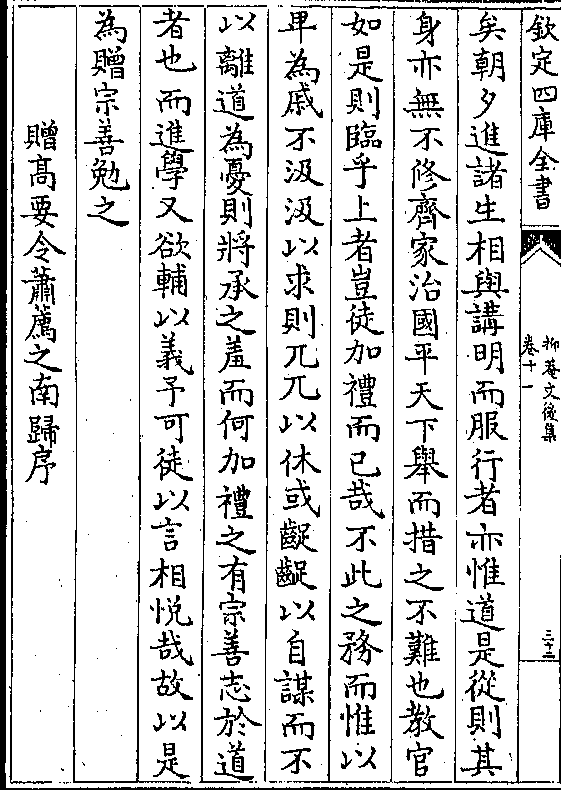 欽定四庫全書
抑菴文後集
卷十一
三十三
矣朝夕進諸生相與講明而服行者亦惟道是從則其
身亦無不修齊家治國平天下舉而措之不難也教官
如是則臨乎上者豈徒加禮而已哉不此之務而惟以
卑為戚不汲汲以求則兀兀以休或齪齪以自謀而不
以離道為憂則將承之羞而何加禮之有宗善志於道
者也而進學又欲輔以義予可徒以言相悦哉故以是
為贈宗善勉之
贈髙要令蕭薦之南歸序